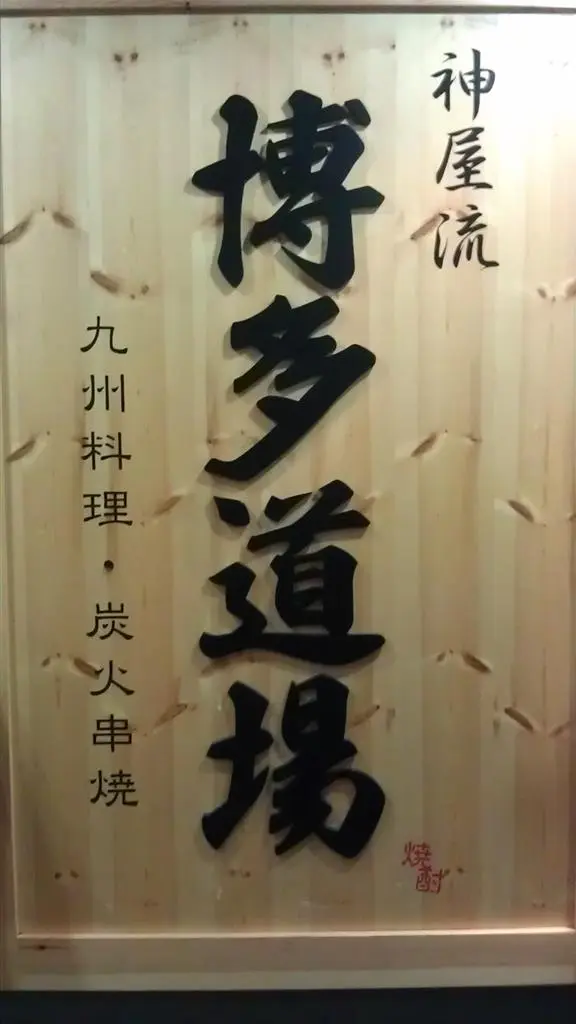 神屋流
博多道場
九州料理・炭火串焼
焼酎